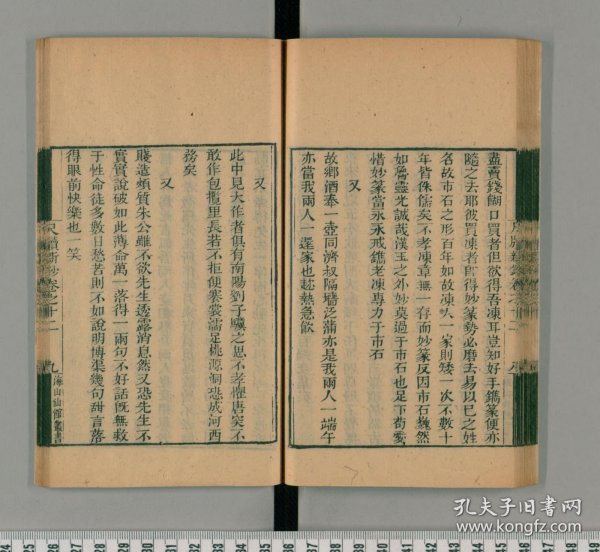 盡賣錢餬口買者但欲得吾凍耳豈知好手鐫篆便亦
隨之去耶彼買凍者卽得妙篆勢必磨去易以巳之姓
名故市石之形百年如故凍入一家則矮一次不數十
年皆侏儒矣不孝凍章無一存而妙篆反因市石巍然
如魯靈光誠哉漢玉之外妙莫過于市石也足下苟愛
惜妙篆當永永戒鐫老凍專力于市石
又
故鄉酒奉一壺同濟叔隔牆泛蒲亦是我兩人一端午
亦當我兩人一還家也趁熱急飲
又
此中見大作者俱有南陽劉子驥之思不孝懼唐突不
敢作包攬里長若不拒便褰裳濡足桃源洞恐成河西
務矣
又
賤造煩質朱公雖不欲先生透露消息然又恐先生不
實實說破如此薄命萬一落得一兩句不好話旣無救
于性命徒多數日愁苦則不如說明博渠幾句甜言落
得眼前快樂也一笑
尺牘新鈔卷之十二
九
海山仙館叢書
孔夫子旧书网
www.kongfz.com